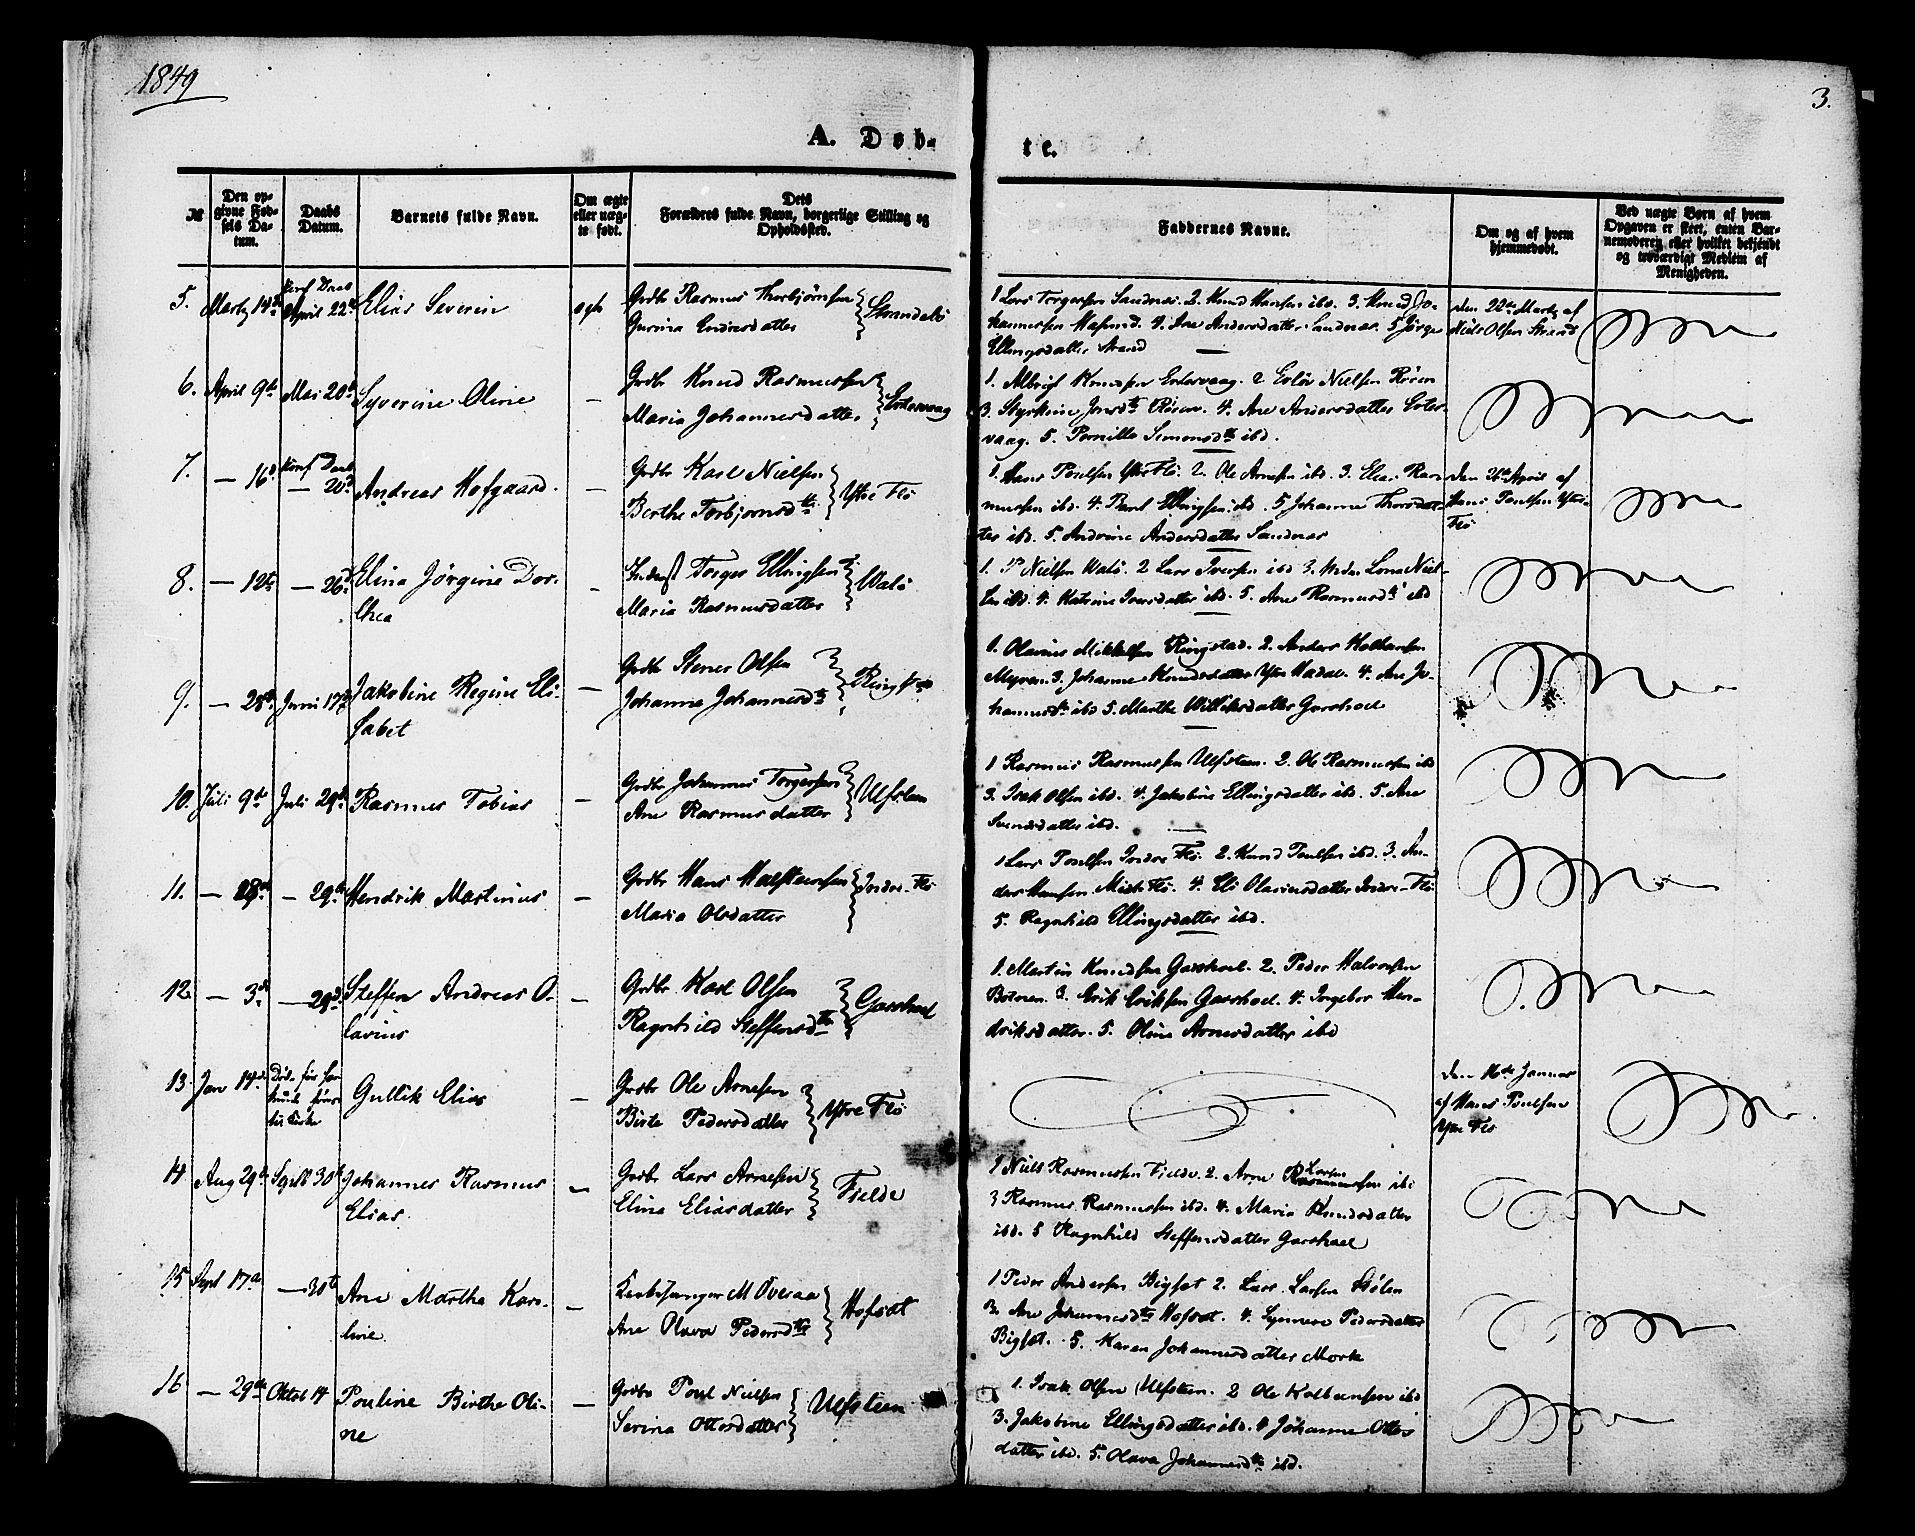 1849
3.
A. Døb-
te.
№
Den op-
givne Fød-
sels Da-
tum.
Daabs
Datum.
Barnets fulde Navn.
Om ægte
eller uæg-
te født.
Dets
Forældres fulde Navn, borgerlige Stilling og
Opholdssted.
Faddernes Navne.
Om og af hvem
hjemmedøbt.
Ved uægte Børn af hvem
Opgaven er skeet, enten Bar-
nemoderen eller hvilket bekjendt
og troværdigt Medlem af
Menigheden.
5.
Martz 14de
April 22de
Elias Severin
egte
Grdbr Rasmus Thorbjørnsen
Gurina Endresdatter
1 Lars Torgersen Sandnæs. 2. Knud Hansen ibd. 3. Knud Jo-
hannessen Hasund. 4. Ane Andersdatter Sandnæs. 5 Jørgine
Ellingsdatter Strand
den 22de Martz af
Niels Olsen Strand
6.
April 9de
Mai 20de
Syverine Oline
—
Grdbr Knud Rasmussen
Maria Johannesdatter
1. Albrigt Knudsen
2 Nielsen
3. 4. Ane Andersdatter
vaag. 5. Pernille Simonsdtr ibd.
7.
— 16d
— 20d
Andreas Hofgaard.
—
Grdbr Karl Nielsen
Berthe Torbjørnsdtr
Ytre Flø
1. Hans Poulsen Ytre Flø. 2. Ole Arnesen ibd. 3. Elias Ras-
mussen ibd. 4. Ellingsen ibd. 5 Johanne Thorsdat-
ter ibd. 5. Andrine Andersdatter Sandnæs
den 26de April af
Hans Poulsen Ytre
Flø
8.
— 12te
— 26d
Elina Jørgine Dor-
thea
—
Inderst Torger Ellingsen
Maria Rasmusdatter
Walø
1. P Nielsen Walø. 2 Lars Iversen ibd 3. Niel-
sen ibd. 4. Katrine Iversdatter ibd. 5. Ane Rasmusdtr ibd
9.
— 28de
Juni 17de
Jakobine Regine Eli-
sabet
—
Grdbr Stener Olsen
Johanna Johannesdtr
Ringstad
1. Olavius Mikkelsen Ringstad. 2. Anders
Myren. 3. Johanne Knudsdatter Ytre 4. Ane Jo-
hannesdtr ibd 5. Marthe Garshoel
10.
Juli 9de
Juli 29de
Rasmus Tobias
—
Grdbr Johannes Torgersen
Ane Rasmusdatter
Ulfsten
1 Rasmus Rasmussen Ulfsteen. 2. Ole Rasmussen ibd
3. Isak Olsen ibd. 4. Jakobine Ellingsdatter ibd. 5. Ane
Svendsdatter ibd.
11.
— 28de
— 29de
Hendrik Martinus
—
Grdbr Hans Halstensen
Maria Olsdatter
Indre-Flø
1 Lars Poulsen Indre Flø. 2. Knud Poulsen ibd. 3. An-
ders Hansen Midt Flø. 4. Eli Olavusdatter Indre-Flø
5. Ragnhild Ellingsdatter ibd.
12.
— 3de
— 29d
Steffen Andreas O-
lavius
—
Grdbr Karl Olsen
Ragnhild Steffensdtr
Garshoel
1. Martin Knudsen Garshoel. 2. Peder Halvorsen
Botnen. 3. Erik Eriksen Garshoel. 4. Ingebor Hen-
driksdatter. 5. Oline Arnesdatter ibd
13.
Jan 14de
Gullik Elias
—
Grdbr Ole Arnesen
Birte Pedersdatter
Ytre Flø
den 16de Januar
af Hans Poulsen
Ytre Flø
14
Aug 29de
Septb 30te
Johannes Rasmus
Elias.
—
Grdbr Lars Arnesen
Elina Eliasdatter
Fjelde
1 Niels Rasmussen Fjelde. 2. Arne Larsen ibd
3 Rasmus Rasmussen ibd. 4. Maria Knudsdatter
ibd. 5 Ragnhild Steffensdatter Garshoel
15
Sept 17de
— 30te
Ane Martha Karo-
line.
—
Kirkesanger M Overaa
Ane Olava Pedersdtr
Hofsæt
1 Peder Andersen Bigset 2. Lars Larsen Stølen
3. Ane Johannesdtr Hofsæt. 4. Synnøve Pedersdatter
Bigset. 5. Karen Johannesdatter Mork
16
— 29de
Oktob 14
Pouline Birthe Oli-
ne
—
Grdbr Poul Nielsen
Serina Ottersdatter
Ulfsteen
1. Isak Olsen Ulfsteen. 2 Ole Kolbeensen ibd
3. Jakobine Ellingsdatter ibd. 4 Johanne Otters
datter ibd. 5. Olava Johannesdtr ibd.